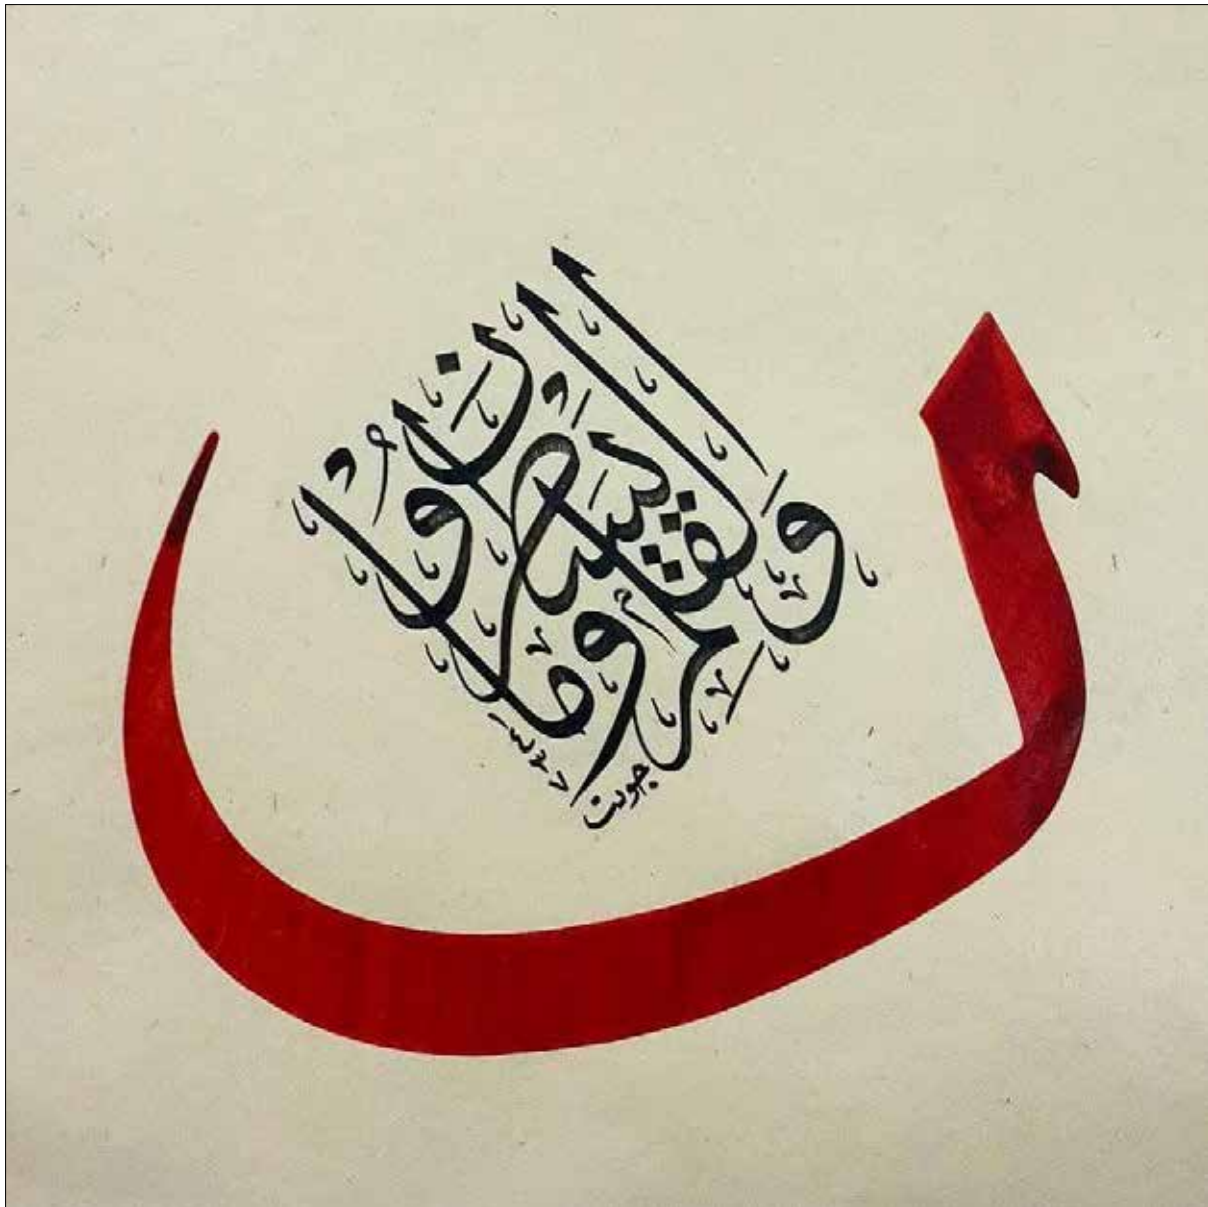 ن
وَالقلمِ وما يَسطُرُونَ
جودت